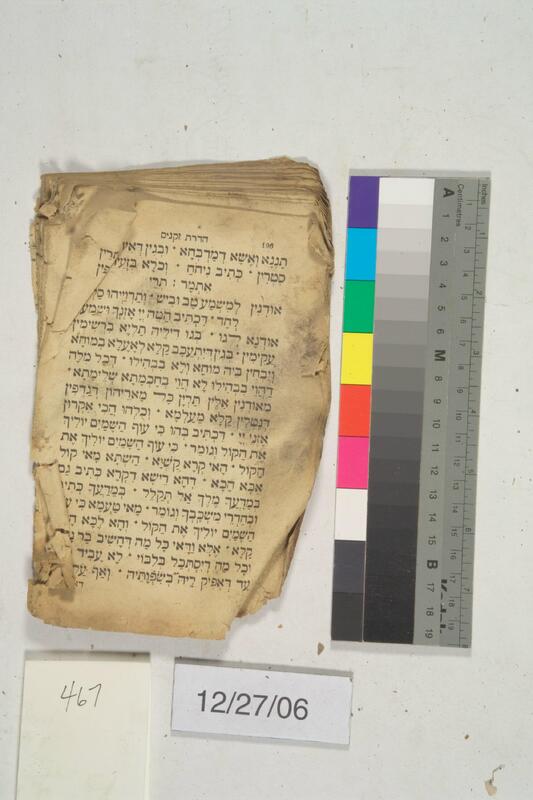 196
הדרת זקנים
תננא ואשא דמדבחא * ובגין דאינון
סטרין * כתיב ניחח * וכלא
אתמר : תרי
אודנין למשמע טב וביש * ותרוייהו
לחד * דכתיב הטה יי אזנך
אודנא * בגו דיליה תליא ברשימין
עקימין * בגין דיתעכב קלא לאעלא במוחא
ויבחין ביה מוחא ולא בבהילו * דכל מלה
דהוי בבהילו לא הוי בחכמתא שלימתא *
מאודנין אלין תליין כל מאריהון דגדפין
דנטלין קלא מעלמא * וכלהו הכי אקרון
אזני יי * דכתיב בהו כי עוף השמים יוליך
את הקול וגומר * כי עוף השמים יוליך את
הקול * האי קרא קשיא * השתא מאי קול
אכא הכא * דהא רישא דקרא כתיב גם
במדעך מלך אל תקלל * במדעך כתיב
ובחדרי משכבך וגומר * מאי טעמא כי
השמים יוליך את הקול * והא לכא
קלא * אלא ודאי כל מה דחשיב בר
וכל מה דיסתכל בלבוי * לא עביד
עד דאפיק ליה בשפוותיה * ואף
467
12/27/06
Inches
Centimetres
1
2
3
4
5
6
7
8
9
10
11
12
13
14
15
16
17
18
19
A
M
B